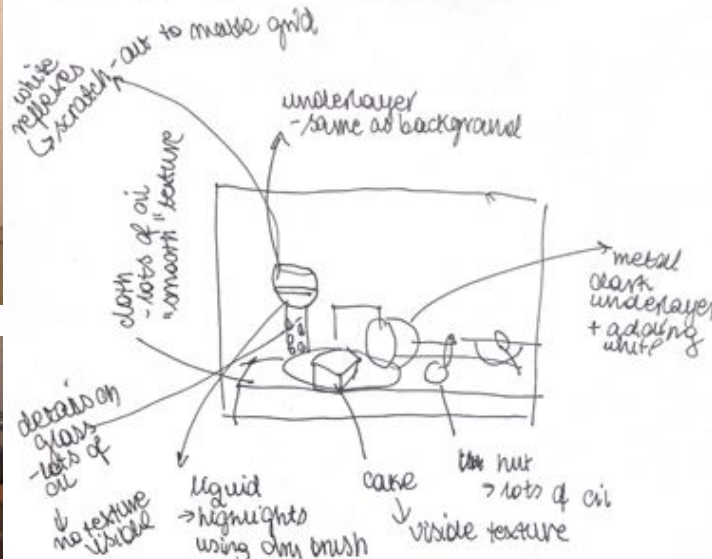 white
reflexes
↳ scratch-out to make grid
underlayer
- same as background
cloth
- lots of oil
"smooth" texture
metal
dark
underlayer
+ adding
white
details on
glass
- lots of
oil
↓
no texture
visible
liquid
→ highlights
using dry brush
cake
↓
visible texture
nut
→ lots of oil